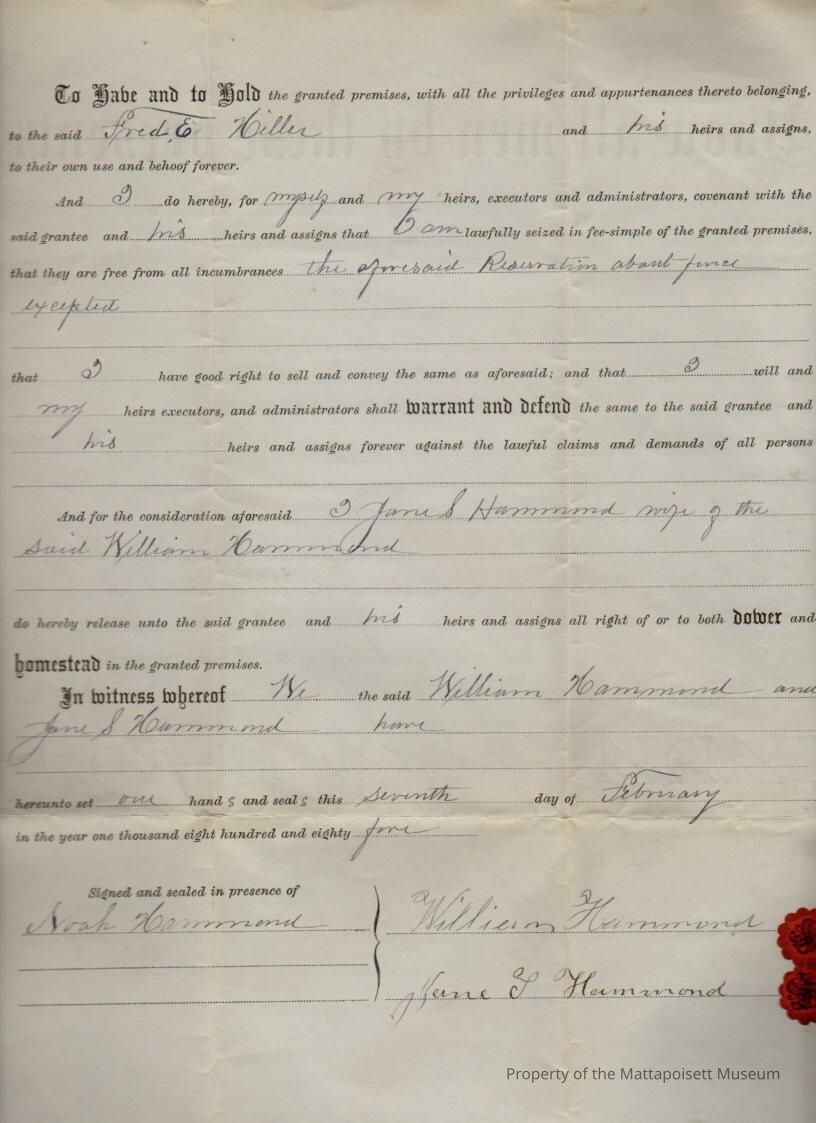 To Have and to Hold the granted premises, with all the privileges and appurtenances thereto belonging,
to the said Fred. E. Hiller and his heirs and assigns,
to their own use and behoof forever.
And I do hereby, for myself and my heirs, executors and administrators, covenant with the
said grantee and his heirs and assigns that I am lawfully seized in fee-simple of the granted premises,
that they are free from all incumbrances the aforesaid Reservation about fence
excepted
that I have good right to sell and convey the same as aforesaid; and that I will and
my heirs executors, and administrators shall warrant and defend the same to the said grantee and
his heirs and assigns forever against the lawful claims and demands of all persons
And for the consideration aforesaid I Jane S Hammond wife of the
said William Hammond
do hereby release unto the said grantee and his heirs and assigns all right of or to both dower and
homestead in the granted premises.
In witness whereof We the said William Hammond and
Jane S Hammond have
hereunto set our hand s and seal s this seventh day of February
in the year one thousand eight hundred and eighty five
Signed and sealed in presence of
Noah Hammond
William Hammond
Jane S Hammond
Property of the Mattapoisett Museum